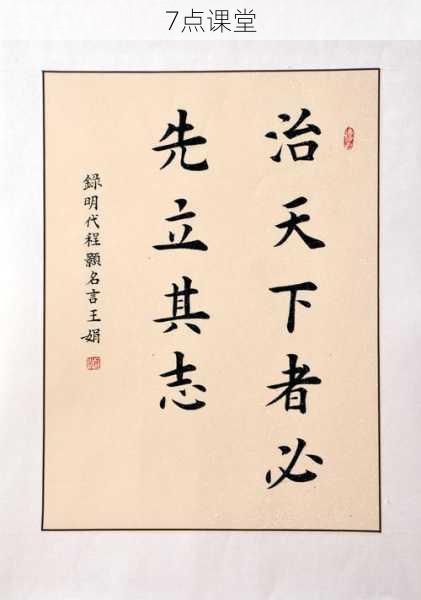 7点课堂
治天下者必
先立其志
録明代程颢名言王娟